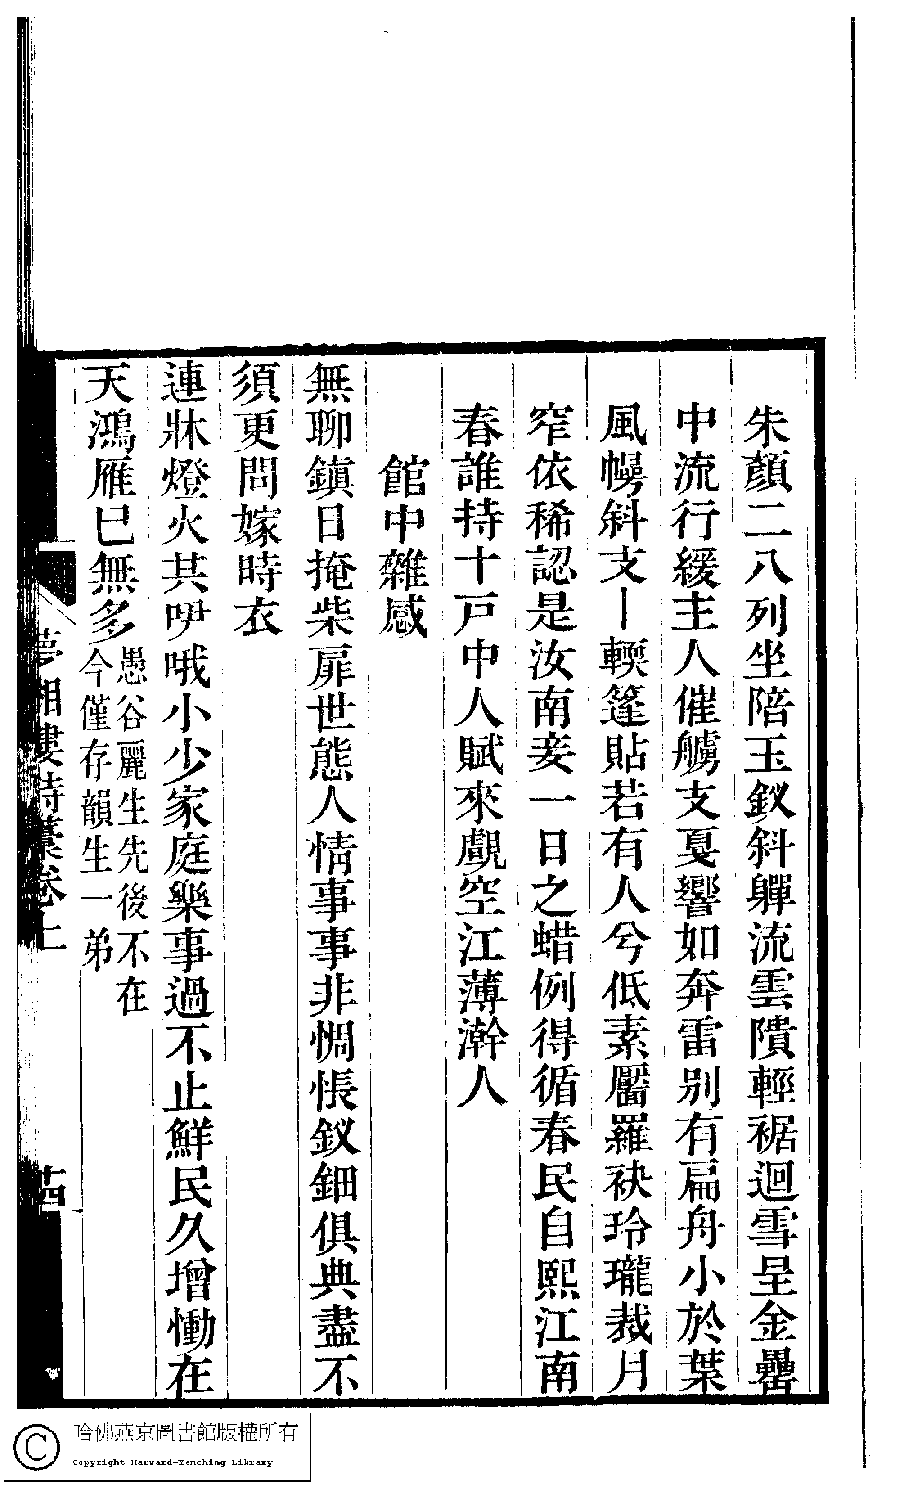 朱顏二八列坐陪玉釵斜嚲流雲隤輕裾迴雪呈金罍
中流行緩主人催艣支戛響如奔雷别有扁舟小於葉
風幔斜支丨輭篷貼若有人兮低素靨羅袂玲瓏裁月
窄依稀認是汝南妾一日之蜡例得循春民自熙江南
春誰持十戸中人賦來覷空江薄澣人
館中雜感
無聊鎮日掩柴扉世態人情事事非惆悵釵鈿俱典盡不
須更問嫁時衣
連牀燈火共咿哦小少家庭樂事過不止鮮民久增慟在
天鴻雁已無多愚谷麗生先後不在
今僅存韻生一弟
夢湘樓詩藁卷上
十四
哈佛燕京圖書館版權所有
Copyright Harvard-Yenching Library